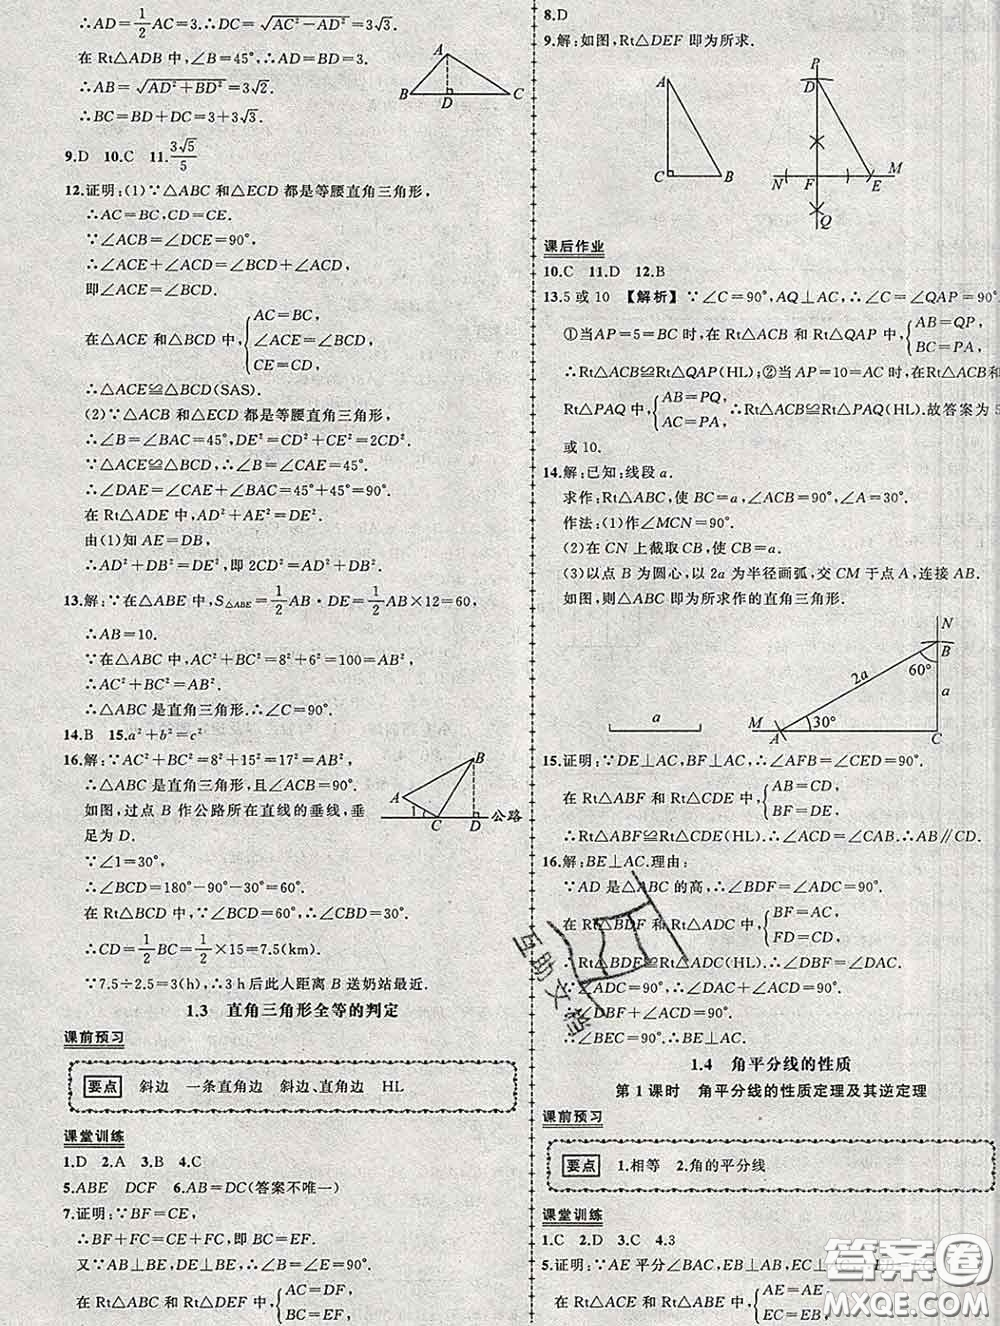 ∴AD=1/2AC=3.∴DC=√(AC²-AD²)=3√3.
在 Rt△ADB 中,∠B=45°,∴AD=BD=3.
∴AB=√(AD²+BD²)=3√2.
∴BC=BD+DC=3+3√3.
A
B D C
9.D 10.C 11.3√5/5
12.证明:(1)∵△ABC 和△ECD 都是等腰直角三角形,
∴AC=BC,CD=CE.
∵∠ACB=∠DCE=90°,
∴∠ACE+∠ACD=∠BCD+∠ACD,
即∠ACE=∠BCD.
在△ACE 和△BCD 中,{AC=BC,
∠ACE=∠BCD,
CE=CD,
∴△ACE≌△BCD(SAS).
(2)∵△ACB 和△ECD 都是等腰直角三角形,
∴∠B=∠BAC=45°,DE²=CD²+CE²=2CD².
∵△ACE≌△BCD,∴∠B=∠CAE=45°.
∴∠DAE=∠CAE+∠BAC=45°+45°=90°.
在 Rt△ADE 中,AD²+AE²=DE².
由(1)知 AE=DB,
∴AD²+DB²=DE²,即 2CD²=AD²+DB².
13.解:∵在△ABE 中,S△ABE=1/2AB·DE=1/2AB×12=60,
∴AB=10.
∵在△ABC 中,AC²+BC²=8²+6²=100=AB²,
∴AC²+BC²=AB².
∴△ABC 是直角三角形.∴∠C=90°.
14.B 15.a²+b²=c²
16.解:∵AC²+BC²=8²+15²=17²=AB²,
∴△ABC 是直角三角形,且∠ACB=90°.
如图,过点 B 作公路所在直线的垂线,垂
足为 D.
∵∠1=30°,
∴∠BCD=180°-90°-30°=60°.
在 Rt△BCD 中,∵∠BCD=60°,∴∠CBD=30°.
∴CD=1/2BC=1/2×15=7.5(km).
∵7.5÷2.5=3(h),∴3 h后此人距离 B 送奶站最近.
B
A
1
C D 公路
1.3 直角三角形全等的判定
课前预习
要点 斜边 一条直角边 斜边、直角边 HL
课堂训练
1.D 2.A 3.B 4.C
5.ABE DCF 6.AB=DC(答案不唯一)
7.证明:∵BF=CE,
∴BF+FC=CE+FC,即 BC=EF.
又∵AB⊥BE,DE⊥BE,∴∠B=∠E=90°.
在 Rt△ABC 和 Rt△DEF 中,{AC=DF,
BC=EF,
8.D
9.解:如图,Rt△DEF 即为所求.
A
C B
P
D
N F E M
Q
课后作业
10.C 11.D 12.B
13.5或10 【解析】∵∠C=90°,AQ⊥AC,∴∠C=∠QAP=90°
①当AP=5=BC时,在 Rt△ACB 和 Rt△QAP 中,{AB=QP,
BC=PA,
∴Rt△ACB≌Rt△QAP(HL);②当 AP=10=AC时,在Rt△ACB和
Rt△PAQ 中,{AB=PQ,
AC=PA,
∴Rt△ACB≌Rt△PAQ(HL).故答案为 5
或 10.
14.解:已知:线段 a.
求作:Rt△ABC,使 BC=a,∠ACB=90°,∠A=30°.
作法:(1)作∠MCN=90°.
(2)在 CN 上截取 CB,使 CB=a.
(3)以点 B 为圆心,以 2a 为半径画弧,交 CM 于点 A,连接 AB.
如图,则△ABC 即为所求作的直角三角形.
a
N
B
2a
60°
a
M
A
30°
C
15.证明:∵DE⊥AC,BF⊥AC,∴∠AFB=∠CED=90°.
在 Rt△ABF 和 Rt△CDE 中,{AB=CD,
BF=DE,
∴Rt△ABF≌Rt△CDE(HL).∴∠ACD=∠CAB.∴AB∥CD.
16.解:BE⊥AC.理由:
∵AD 是△ABC 的高,∴∠BDF=∠ADC=90°.
在 Rt△BDF 和 Rt△ADC 中,{BF=AC,
FD=CD,
∴Rt△BDF≌Rt△ADC(HL).∴∠DBF=∠DAC.
∵∠ADC=90°,∴∠DAC+∠ACD=90°.
∴∠DBF+∠ACD=90°.
∴∠BEC=90°.∴BE⊥AC.
互助文档
1.4 角平分线的性质
第 1 课时 角平分线的性质定理及其逆定理
课前预习
要点 1.相等 2.角的平分线
课堂训练
1.C 2.D 3.C 4.3
5.证明:∵AE 平分∠BAC,EB⊥AB,EC⊥
在 Rt△ACE 和 Rt△ABE 中,{AE=AE,
EC=EB,
答案圈
MXQE.COM